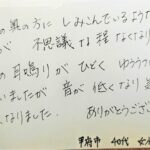 の奥の方に しみこんでいるような
が 不思議な程 なくなり
の耳鳴りが ひどく ゆううつ
いましたが 音が低くなり
になりました。
ありがとうござい
甲府市 40代 女